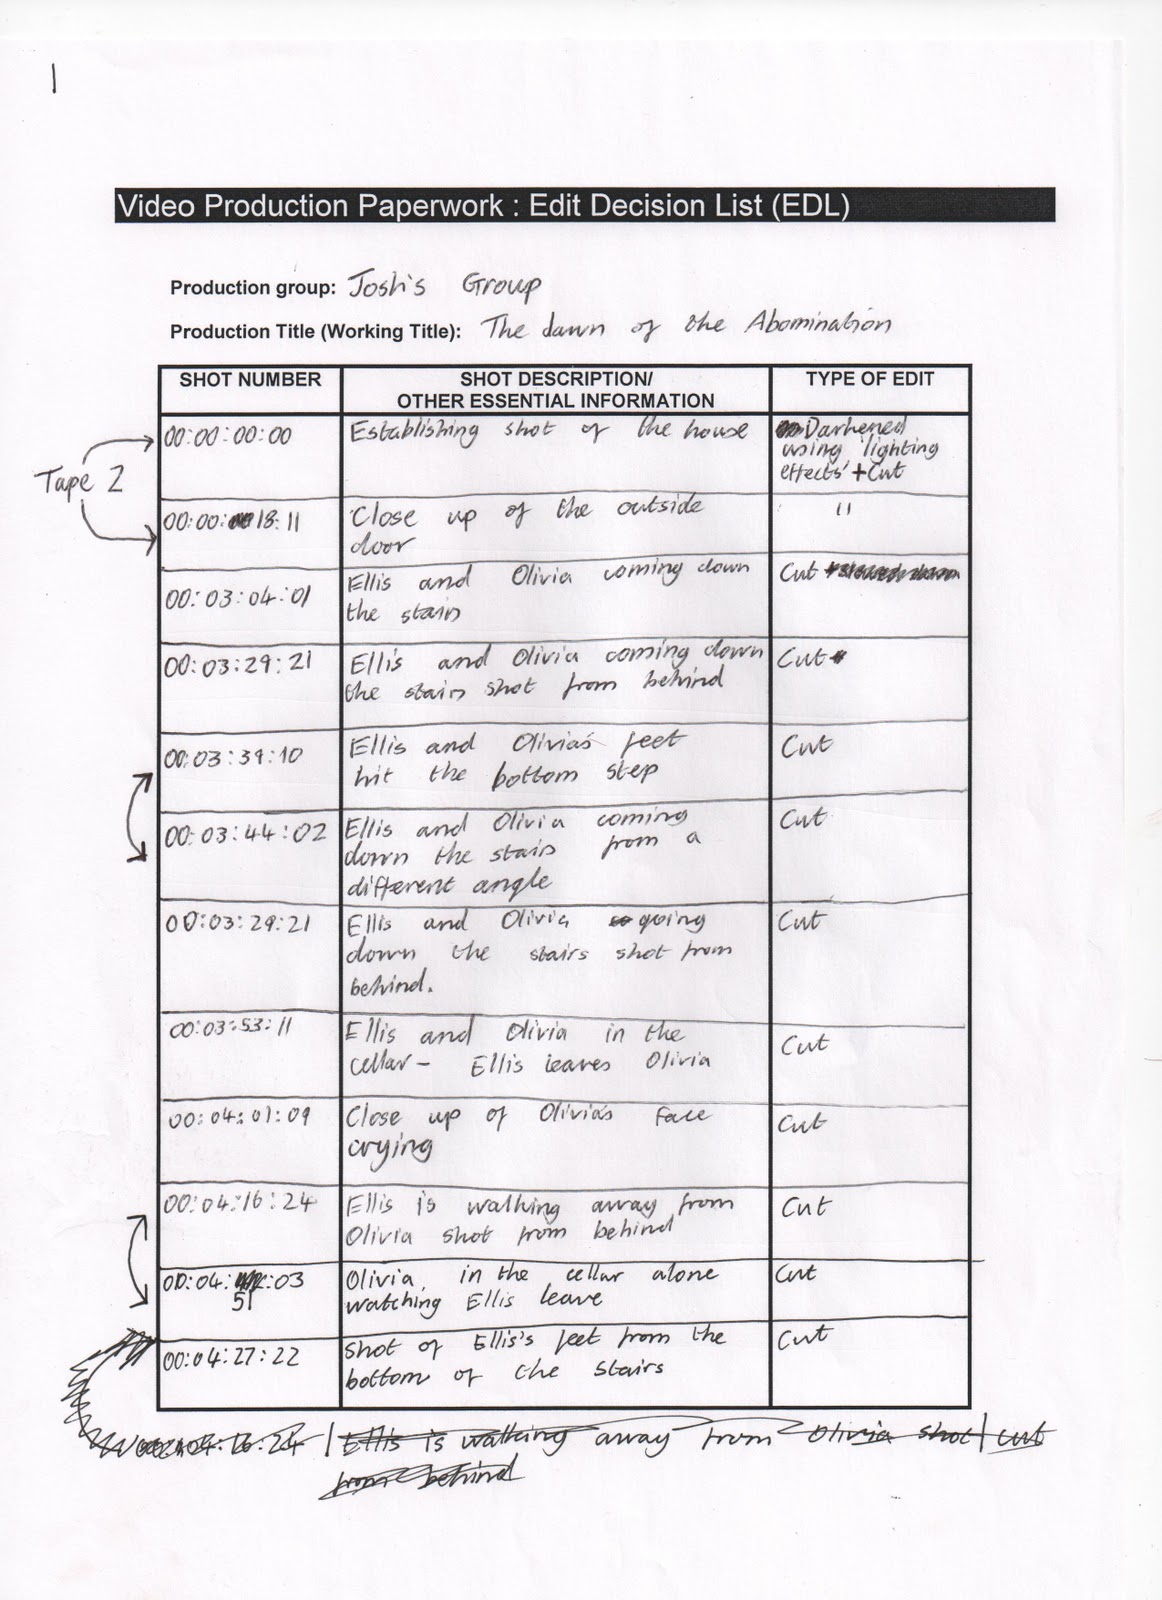 1
Video Production Paperwork : Edit Decision List (EDL)
Production group: Josh's Group
Production Title (Working Title): The dawn of the Abomination
SHOT NUMBER
SHOT DESCRIPTION/
OTHER ESSENTIAL INFORMATION
TYPE OF EDIT
Tape 2
00:00:00:00
Establishing shot of the house
Darkened
using 'lighting
effects' + Cut
00:00:18:11
Close up of the outside
door
11
00:03:04:01
Ellis and Olivia coming down
the stairs
Cut
00:03:29:21
Ellis and Olivia coming down
the stairs shot from behind
Cut
00:03:39:10
Ellis and Olivia's feet
hit the bottom step
Cut
00:03:44:02
Ellis and Olivia coming
down the stairs from a
different angle
Cut
00:03:29:21
Ellis and Olivia going
down the stairs shot from
behind.
Cut
00:03:53:11
Ellis and Olivia in the
cellar - Ellis leaves Olivia
Cut
00:04:01:09
Close up of Olivia's face
crying
Cut
00:04:16:24
Ellis is walking away from
Olivia shot from behind
Cut
00:04:51:03
Olivia in the cellar alone
watching Ellis leave
Cut
00:04:27:22
Shot of Ellis's feet from the
bottom of the stairs
Cut
04:16:24 | Ellis is walking away from Olivia shot | cut
from behind